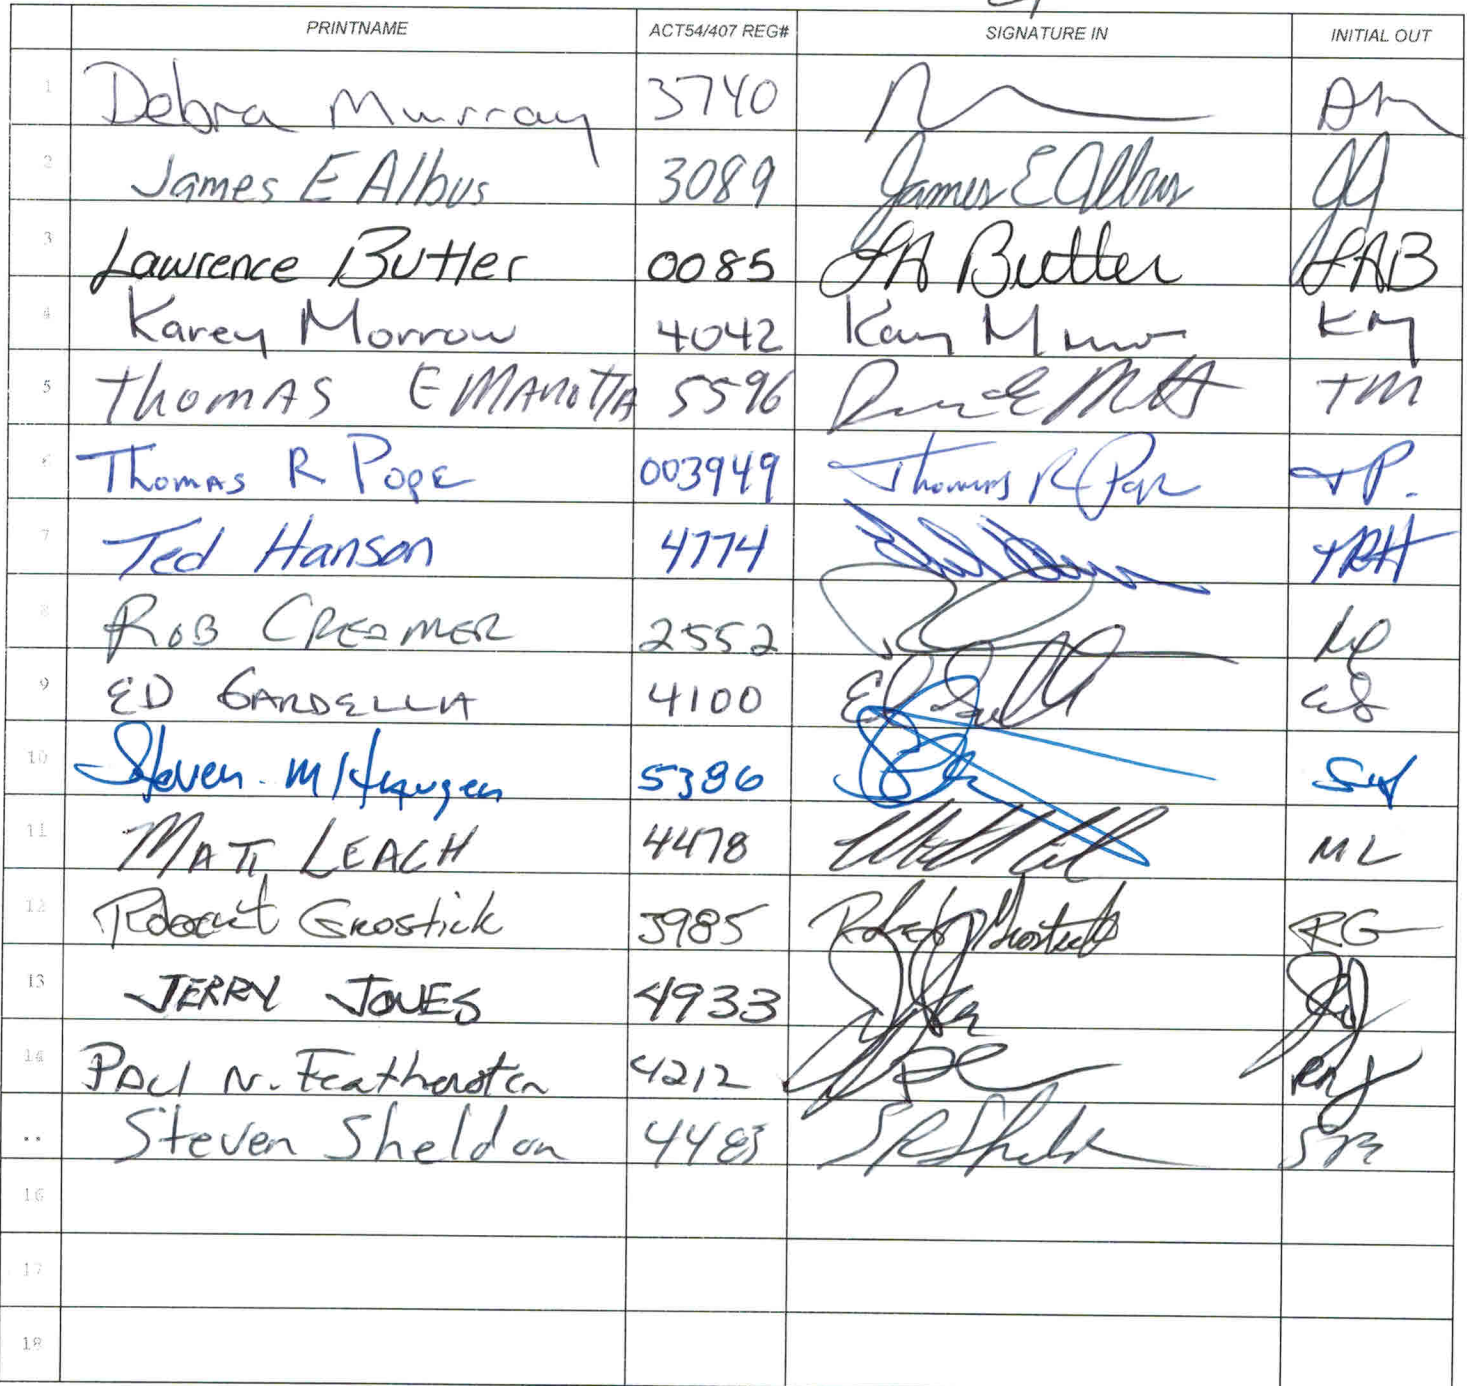 PRINTNAME ACT54/407 REG# SIGNATURE IN INITIAL OUT
1 Debra Murray 3740 DM
2 James E Albus 3089 James E Albus JA
3 Lawrence Butler 0085 LA Butler LAB
4 Karey Morrow 4042 KM
5 Thomas E MANOTTA 5596 TM
6 Thomas R Pope 003949 Thomas R Pope TP.
7 Ted Hanson 4774 TRH
8 ROB CREAMER 2552
9 ED GARDELLA 4100 EG
10 Steven M Haugen 5386
11 MATT LEACH 4478 ML
12 Robert Grostick 3985 Robert Grostick RG
13 JERRY JONES 4933 JJ
14 PAul N. 4212
Steven Sheldon 4483 SR Sheldon
16
17
18